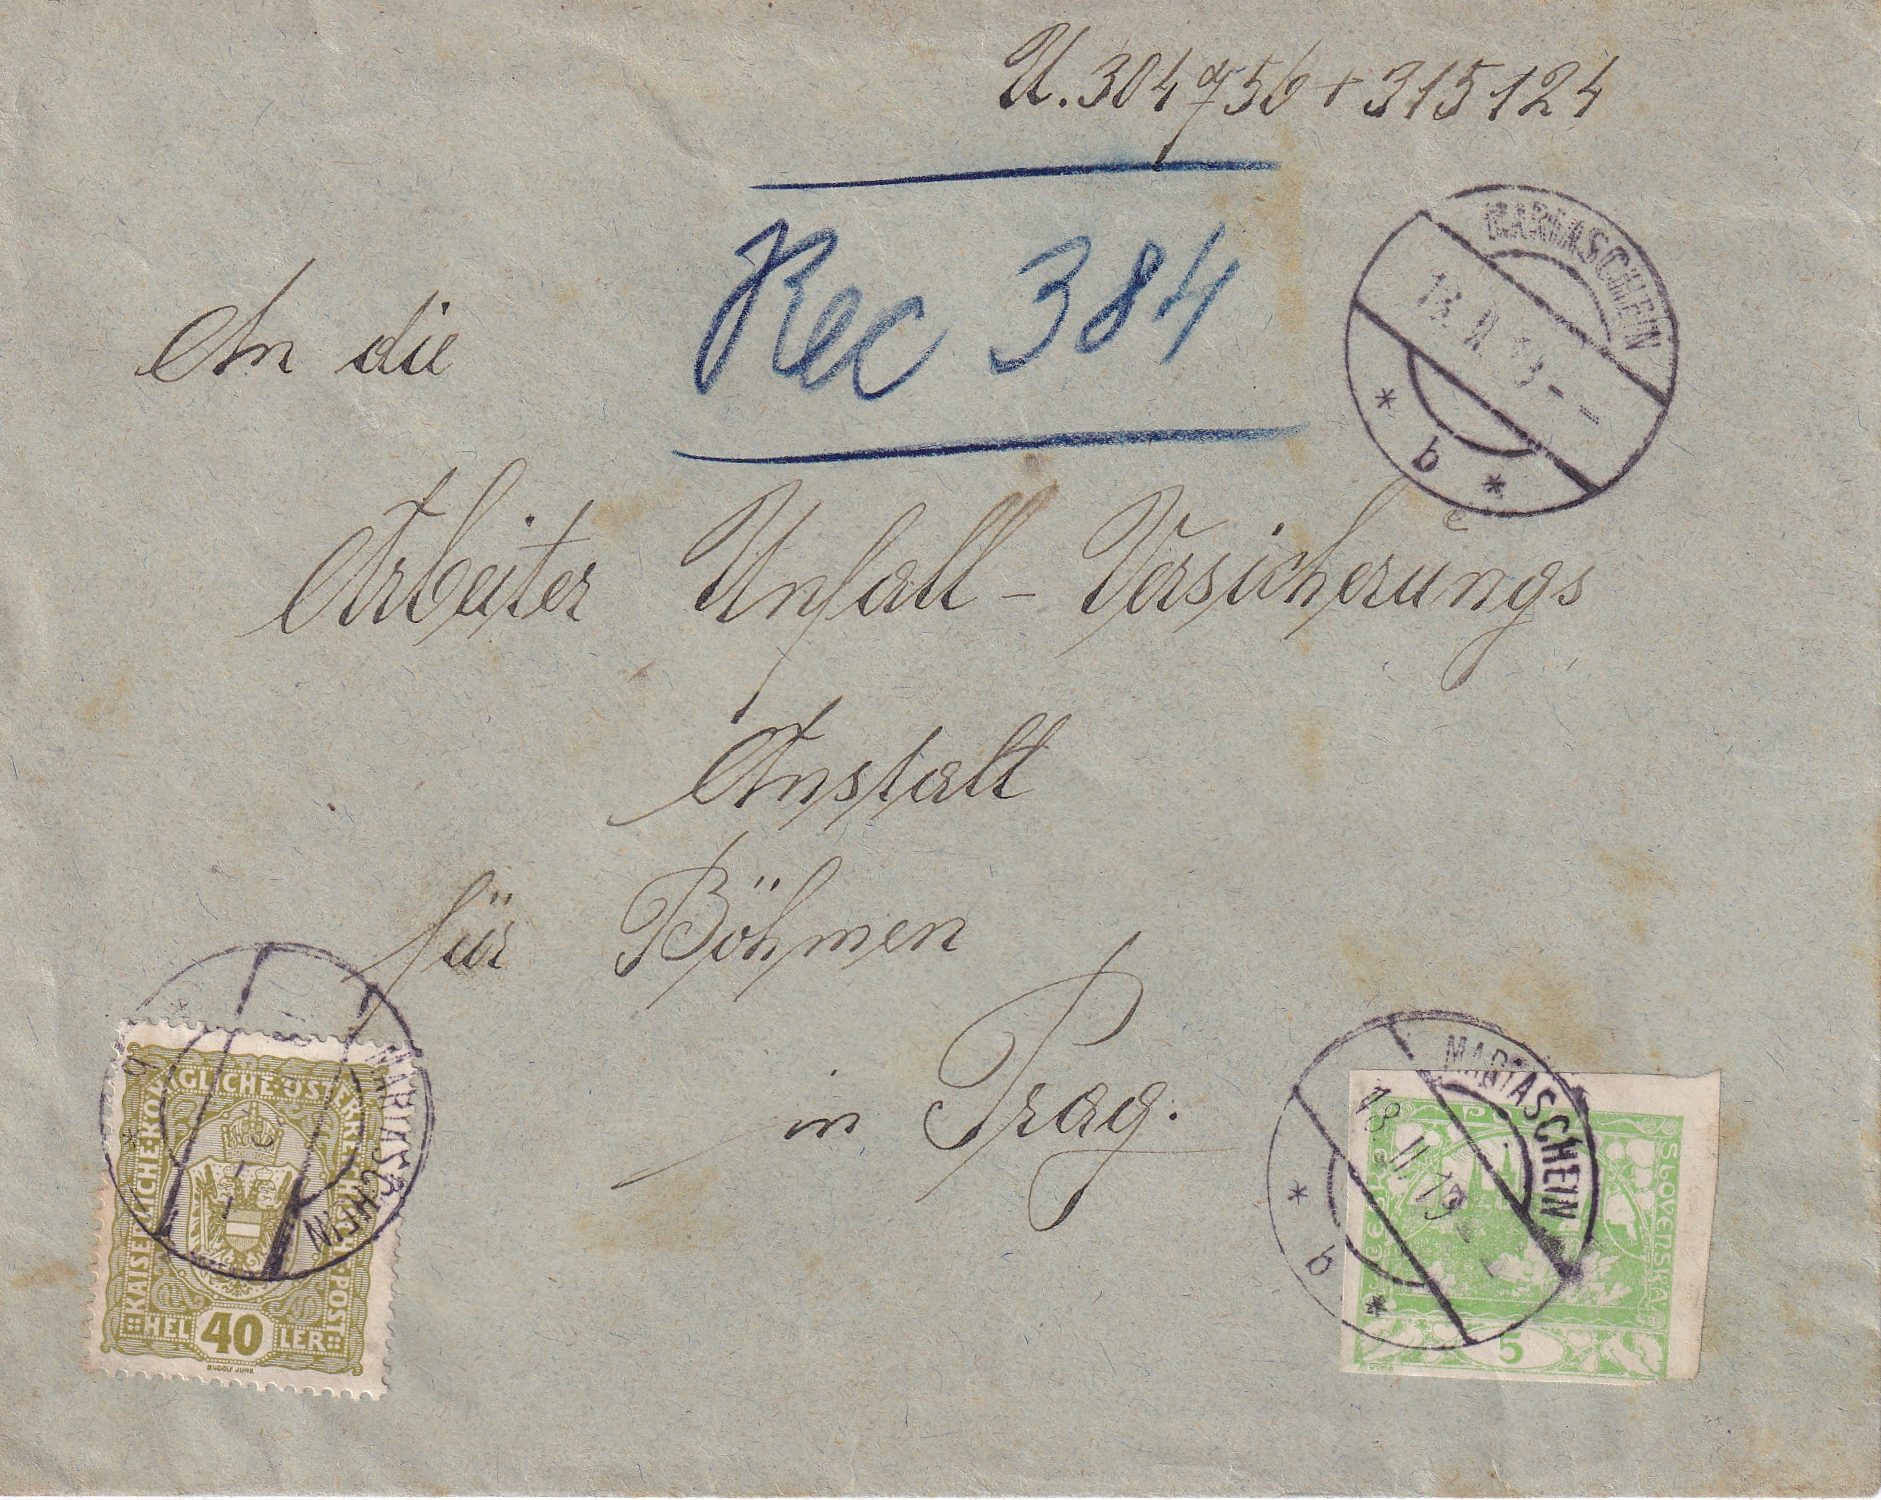 U. 304756 + 315124
Rec 384
MARIASCHEIN
18. II. 19 - -
* b *
An die
Arbeiter Unfall - Versicherungs
Anstalt
für Böhmen
in Prag.
MARIASCHEIN
* b *
KAISERLICHE·KÖNIGLICHE·ÖSTERREICHISCHE·POST
HELLER
40
RUDOLF JUNK
MARIASCHEIN
18 II 19
* b *
SLOVENSKÁ
5